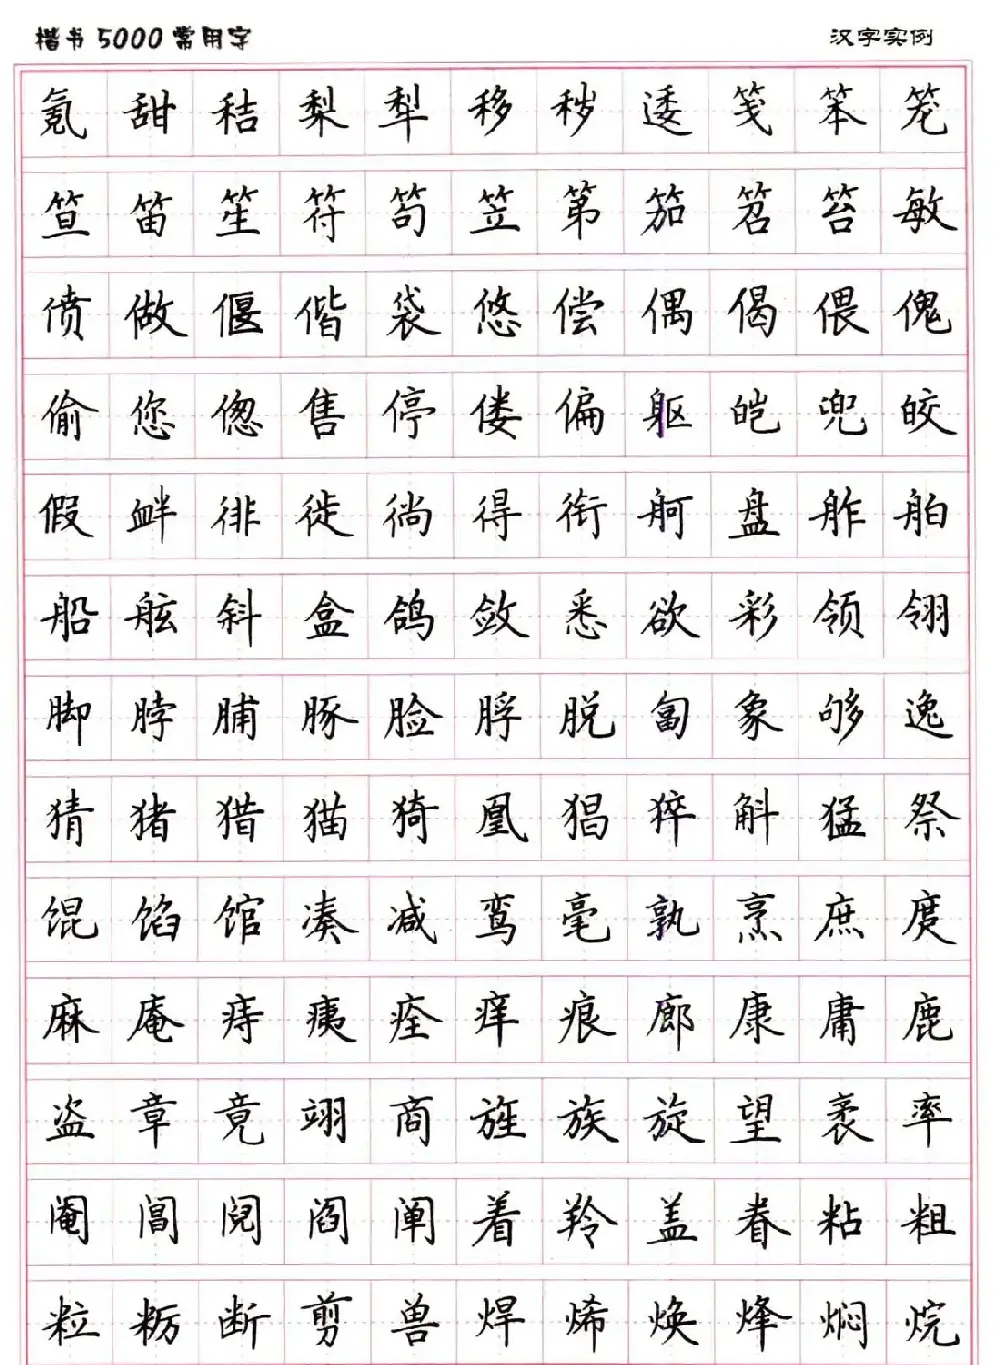 楷书5000常用字 汉字实例
氪 甜 秸 梨 犁 移 秽 逶 笺 笨 笼
笪 笛 笙 符 笱 笠 第 笳 笤 笞 敏
偾 做 偃 偕 袋 悠 偿 偶 偈 偎 傀
偷 您 偬 售 停 偻 偏 躯 皑 兜 皎
假 衅 徘 徙 徜 得 衔 舸 盘 舴 舶
船 舷 斜 盒 鸽 敛 悉 欲 彩 领 翎
脚 脖 脯 豚 脸 脬 脱 匐 象 够 逸
猜 猪 猎 猫 猗 凰 猖 猝 斛 猛 祭
馄 馅 馆 凑 减 鸾 毫 孰 烹 庶 庹
麻 庵 痔 痍 痊 痒 痕 廊 康 庸 鹿
盗 章 竟 翊 商 旌 族 旋 望 袤 率
阉 阊 阋 阎 阐 着 羚 盖 眷 粘 粗
粒 粝 断 剪 兽 焊 烯 焕 烽 焖 烷